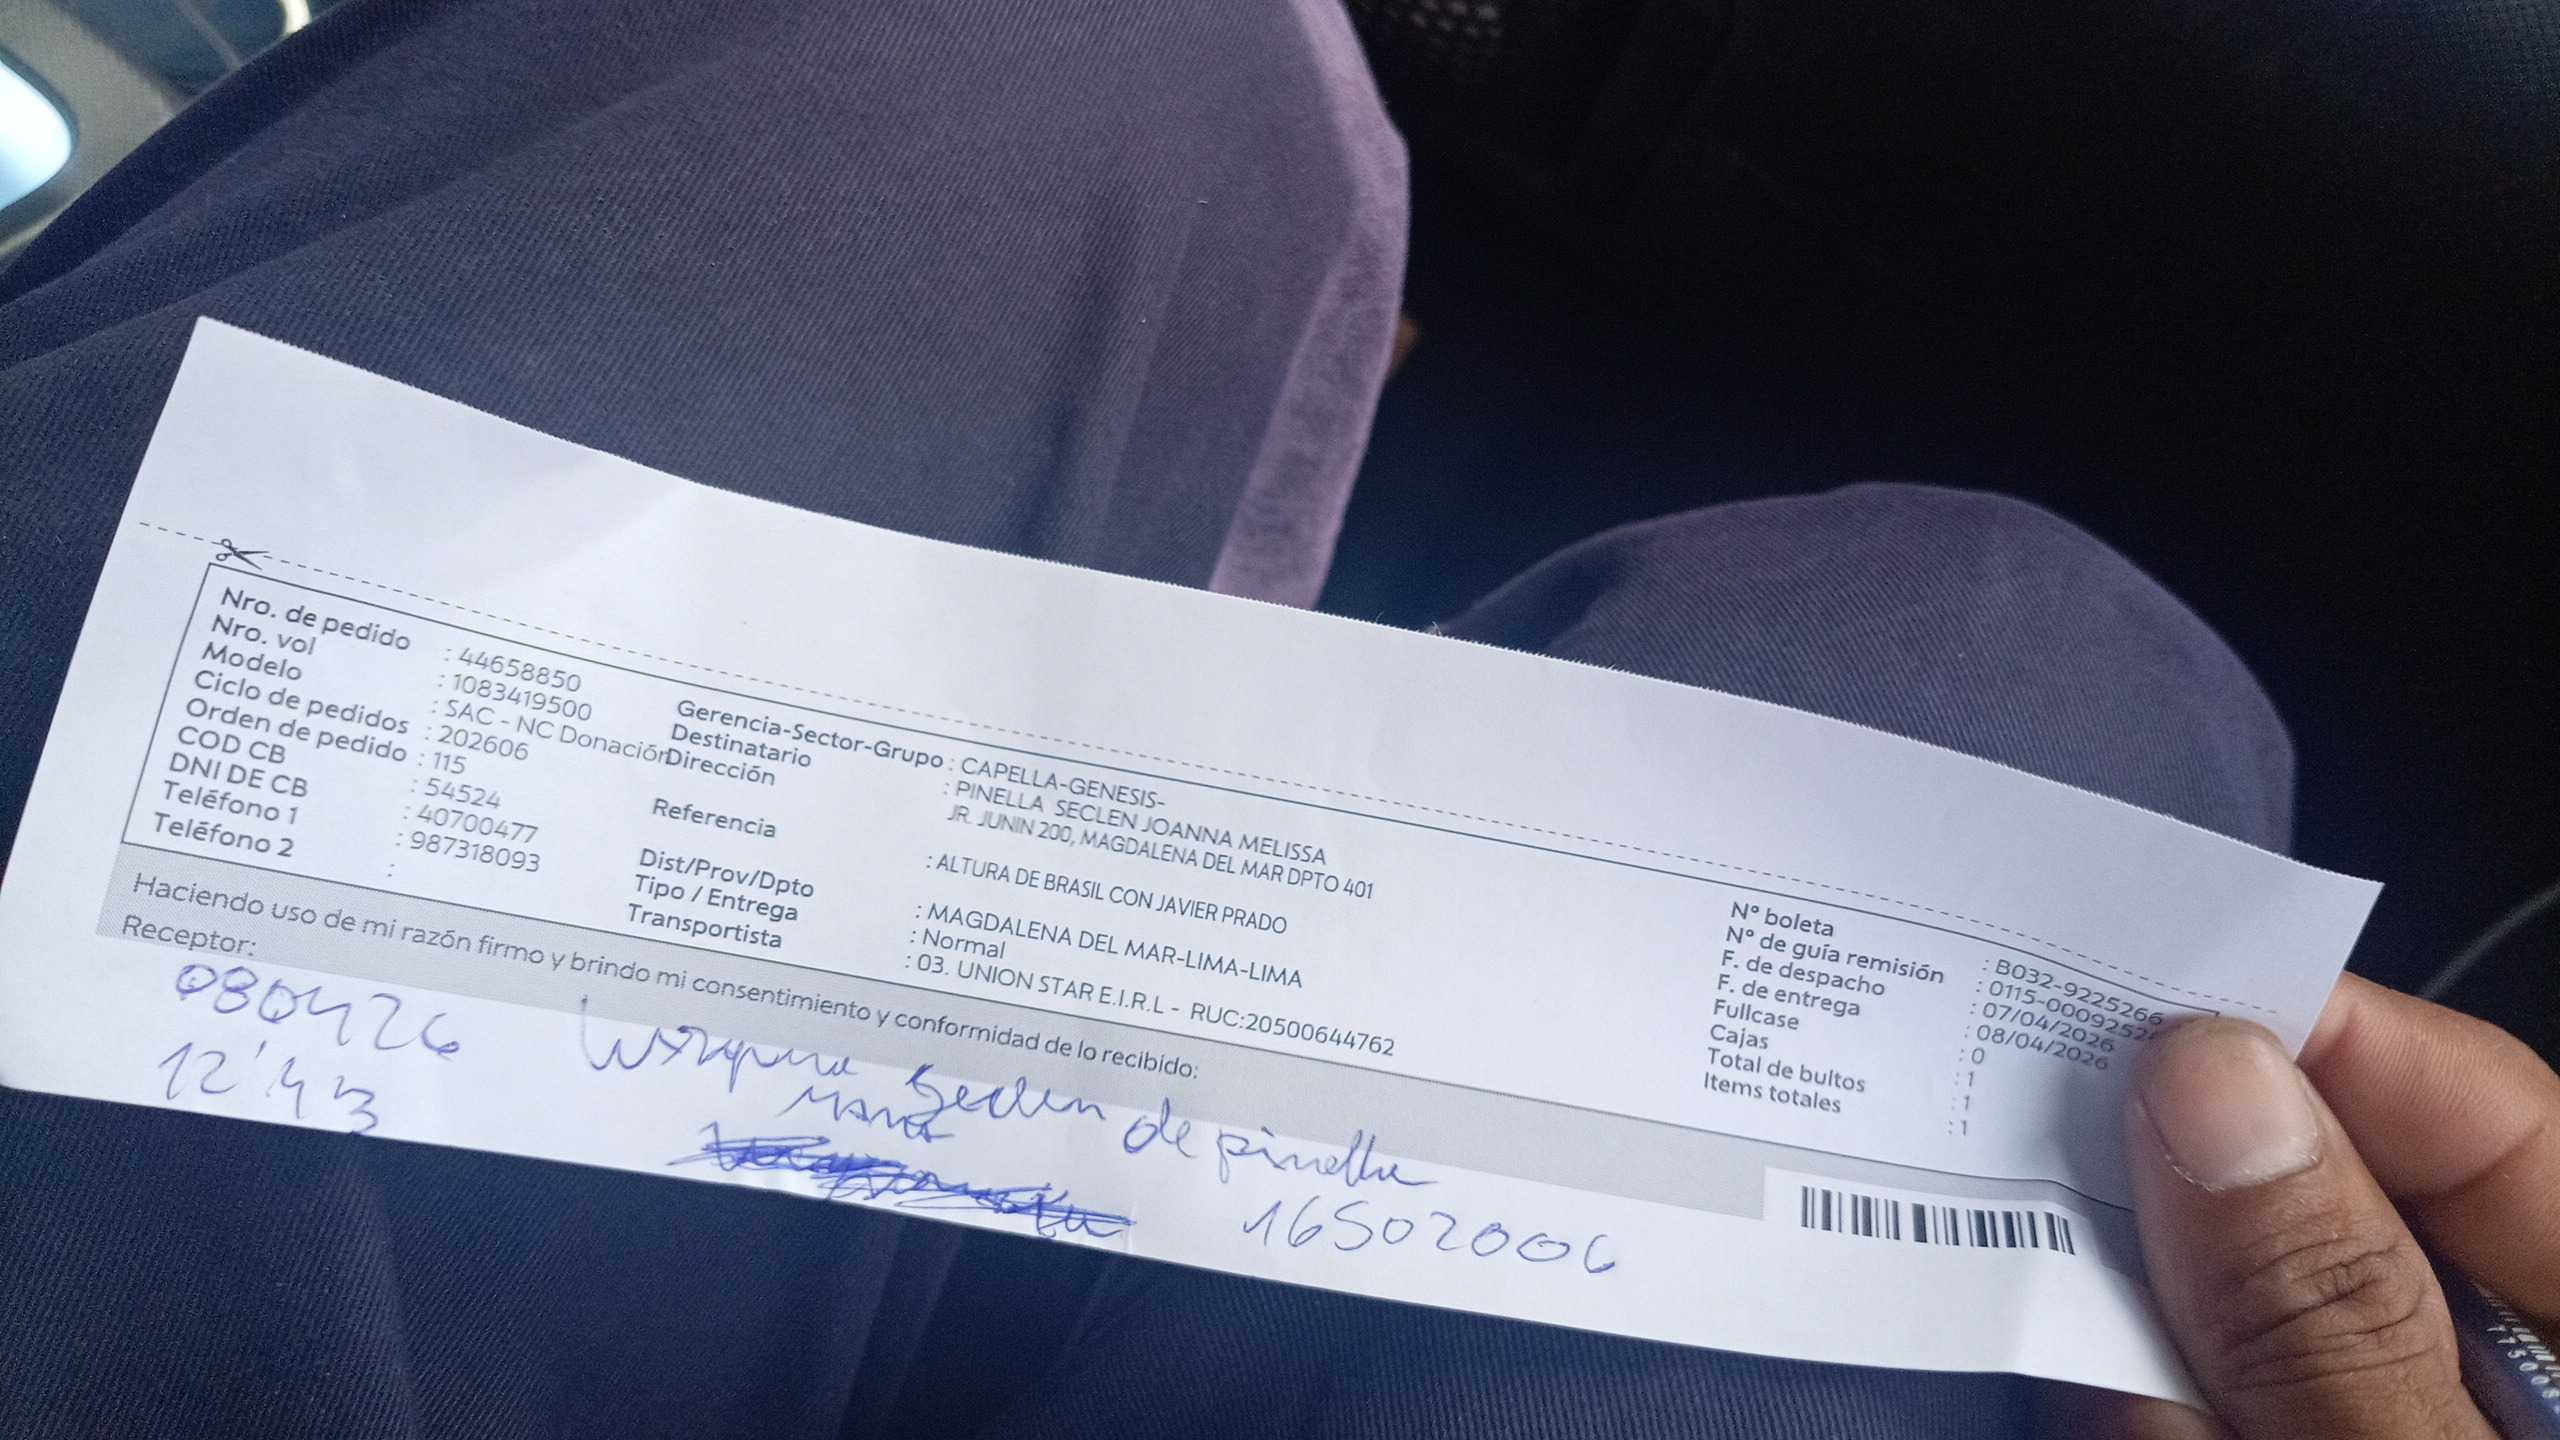 Nro. de pedido : 44658850
Nro. vol : 1083419500
Modelo : SAC - NC Donación
Ciclo de pedidos : 202606
Orden de pedido : 115
COD CB : 54524
DNI DE CB : 40700477
Teléfono 1 : 987318093
Teléfono 2 :
Gerencia-Sector-Grupo : CAPELLA-GENESIS-
Destinatario : PINELLA SECLEN JOANNA MELISSA
Dirección JR. JUNIN 200, MAGDALENA DEL MAR DPTO 401
Referencia : ALTURA DE BRASIL CON JAVIER PRADO
Dist/Prov/Dpto : MAGDALENA DEL MAR-LIMA-LIMA
Tipo / Entrega : Normal
Transportista : 03. UNION STAR E.I.R.L - RUC:20500644762
N° boleta : B032-9225266
N° de guía remisión : 0115-0009252
F. de despacho : 07/04/2026
F. de entrega : 08/04/2026
Fullcase : 0
Cajas : 1
Total de bultos : 1
Items totales : 1
Haciendo uso de mi razón firmo y brindo mi consentimiento y conformidad de lo recibido:
Receptor:
080426 Seclen de pinella
12'43
16502006